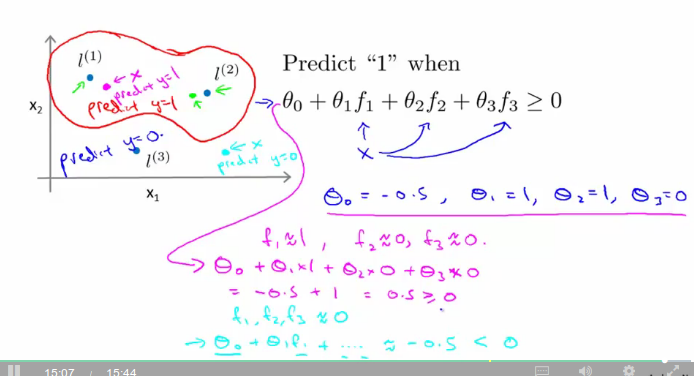 l(1)
← x
predict y=1
l(2)
predict y=1
x₂
predict y=0.
l(3)
← x
predict y=0
x₁
Predict “1” when
θ₀ + θ₁f₁ + θ₂f₂ + θ₃f₃ ≥ 0
x
θ₀ = -0.5 , θ₁=1, θ₂=1, θ₃=0
f₁≈1 , f₂≈0, f₃≈0.
→ θ₀ + θ₁×1 + θ₂×0 + θ₃×0
= -0.5 + 1 = 0.5 ≥ 0
f₁, f₂, f₃ ≈ 0
→ θ₀ + θ₁f₁ + .... ≈ -0.5 < 0
15:07 / 15:44